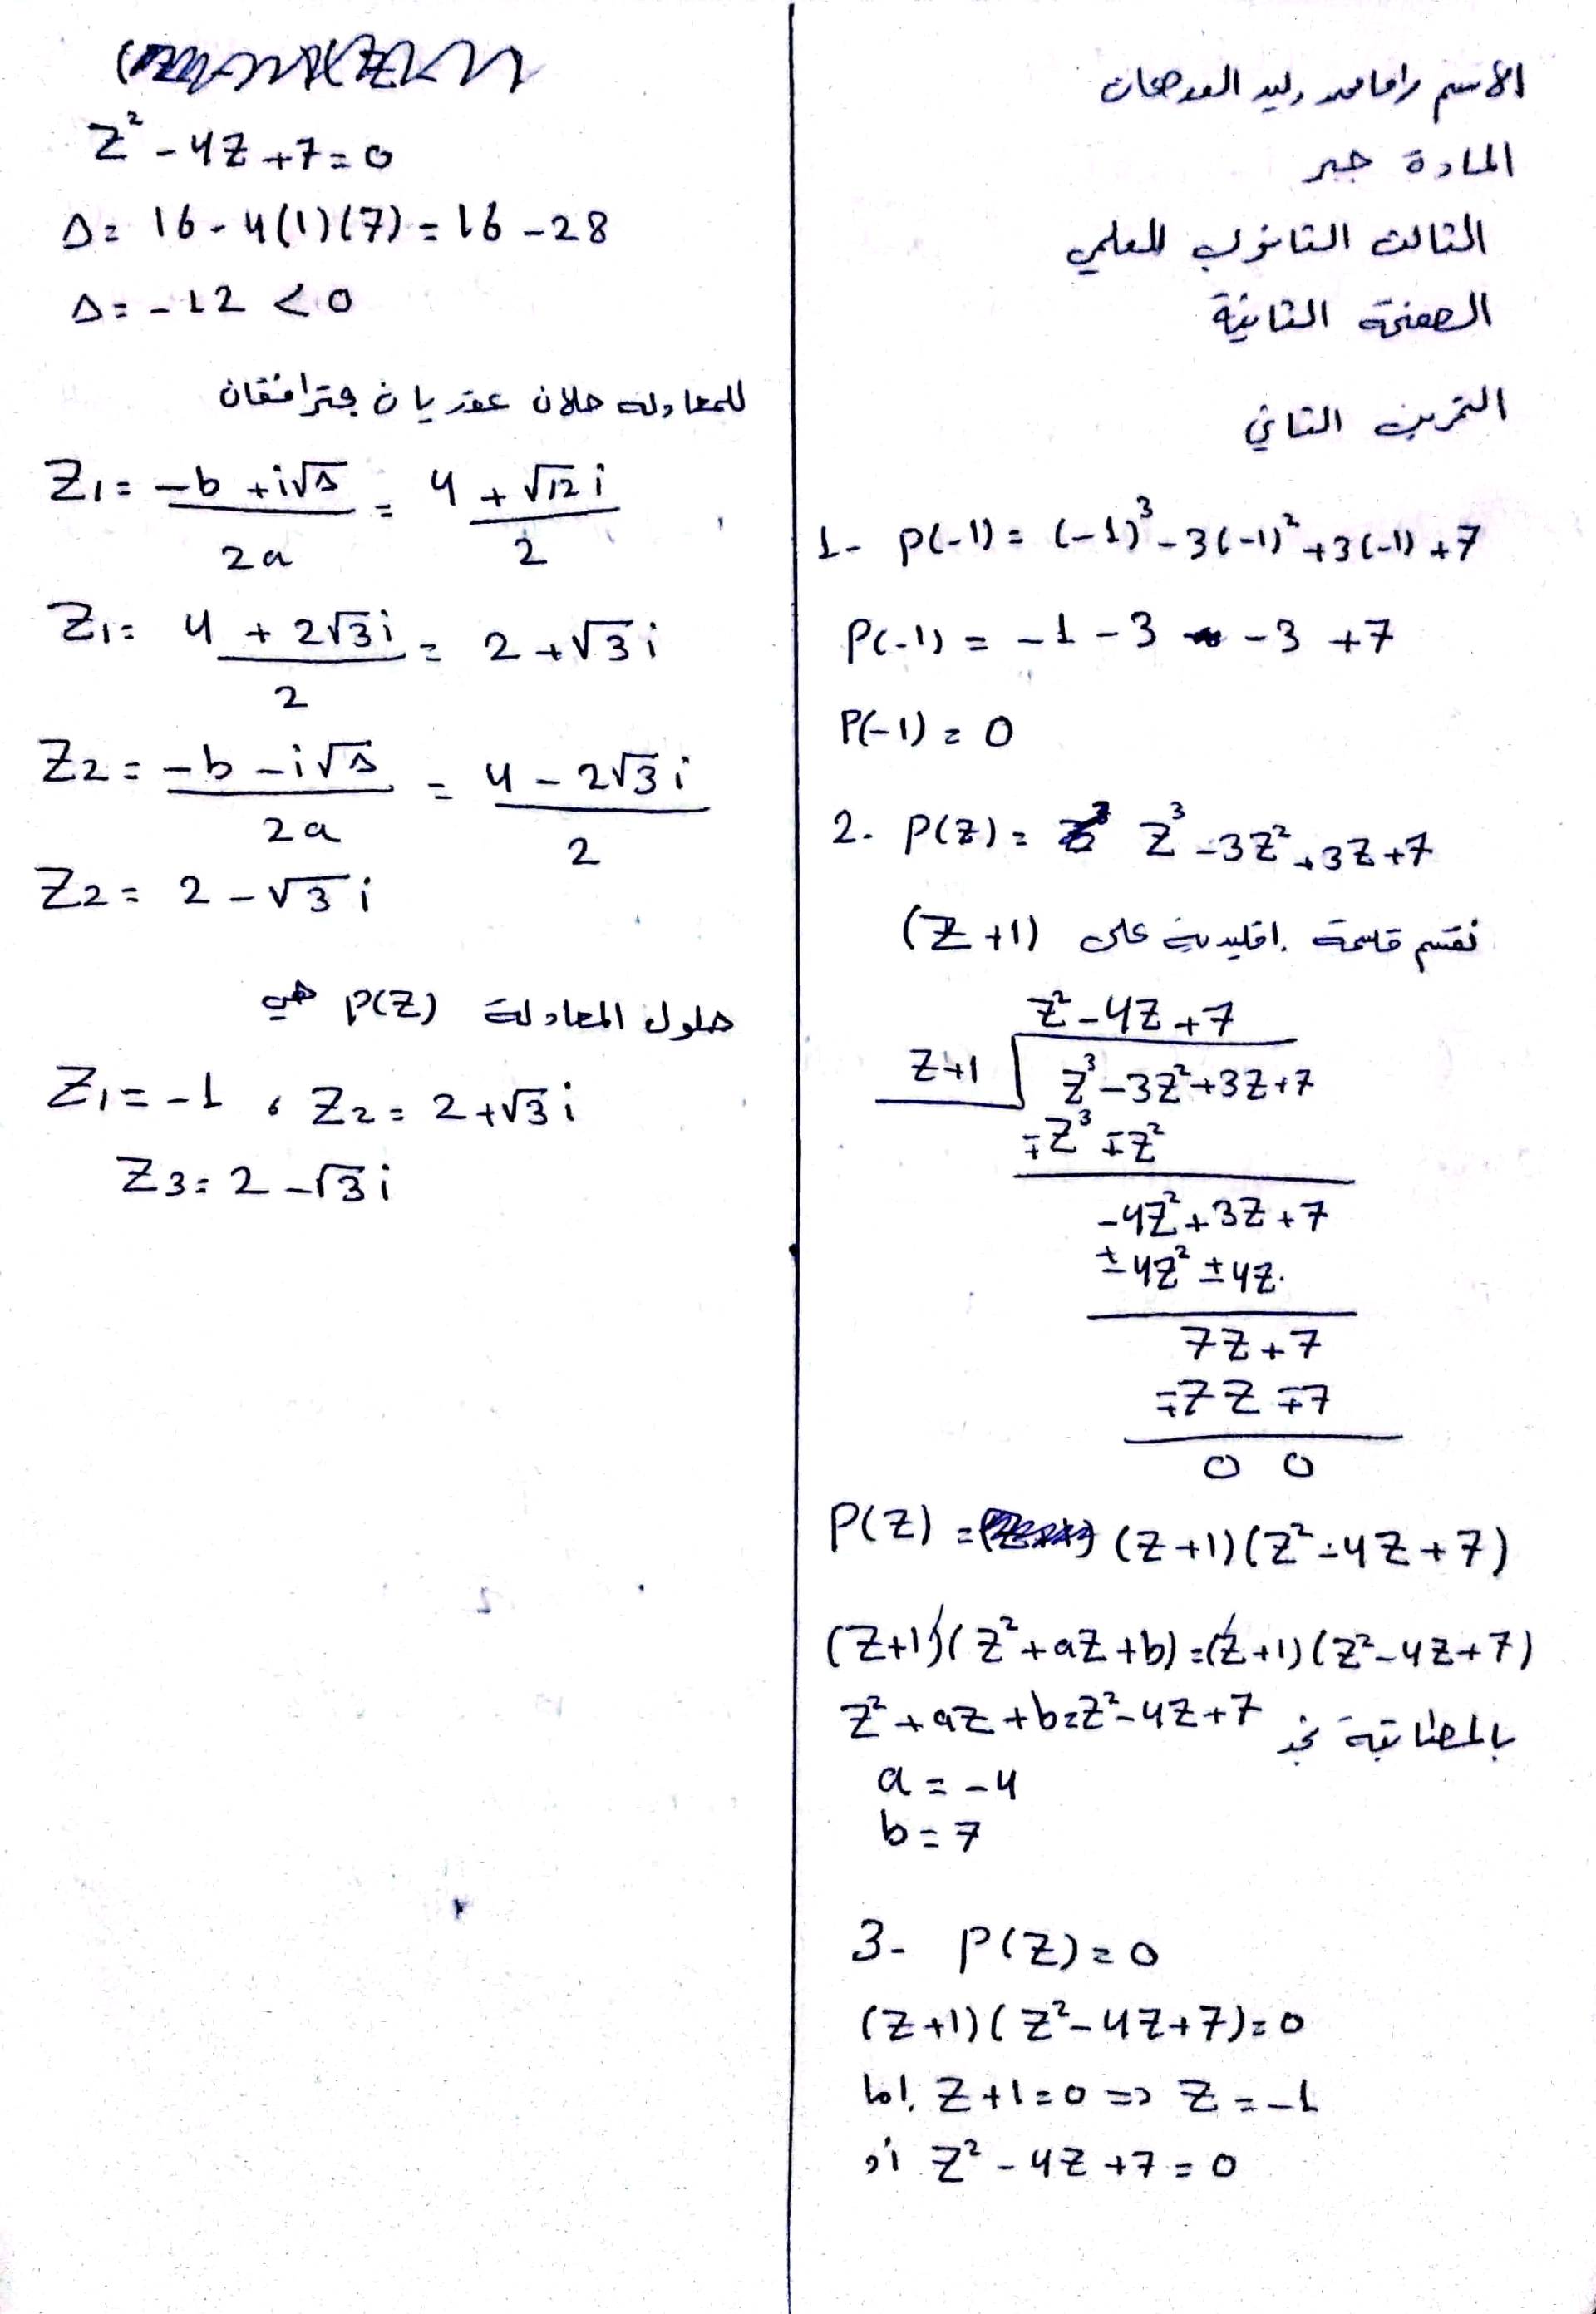 الاسم راما محمد وليد
المادة جبر
الثالث الثانوي العلمي
الصفحة الثانية
التمرين الثاني
1- P(-1) = (-1)³ - 3(-1)² + 3(-1) + 7
P(-1) = -1 - 3 - 3 + 7
P(-1) = 0
2- P(Z) = Z³ - 3Z² + 3Z + 7
نقسم قسمة إقليدية على (Z+1)
Z² - 4Z + 7
Z+1 Z³ - 3Z² + 3Z + 7
∓Z³ ∓Z²
-4Z² + 3Z + 7
±4Z² ±4Z
7Z + 7
∓7Z ∓7
0 0
P(Z) = (Z+1)(Z² - 4Z + 7)
(Z+1)(Z² + aZ + b) = (Z+1)(Z² - 4Z + 7)
Z² + aZ + b = Z² - 4Z + 7 بالمطابقة نجد
a = -4
b = 7
3- P(Z) = 0
(Z+1)(Z² - 4Z + 7) = 0
إما Z + 1 = 0 => Z = -1
أو Z² - 4Z + 7 = 0
Z² - 4Z + 7 = 0
Δ = 16 - 4(1)(7) = 16 - 28
Δ = -12 < 0
للمعادلة حلان عقديان مترافقان
Z1 = (-b + i√Δ)/2a = (4 + √12 i)/2
Z1 = (4 + 2√3 i)/2 = 2 + √3 i
Z2 = (-b - i√Δ)/2a = (4 - 2√3 i)/2
Z2 = 2 - √3 i
حلول المعادلة P(Z) هي
Z1 = -1 ، Z2 = 2 + √3 i
Z3 = 2 - √3 i